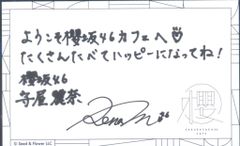 ようこそ櫻坂46カフェへ♡
たくさんたべてハッピーになってね!
櫻坂46
守屋麗奈
櫻
SAKURAZAKA46
CAFE
© Seed & Flower LLC